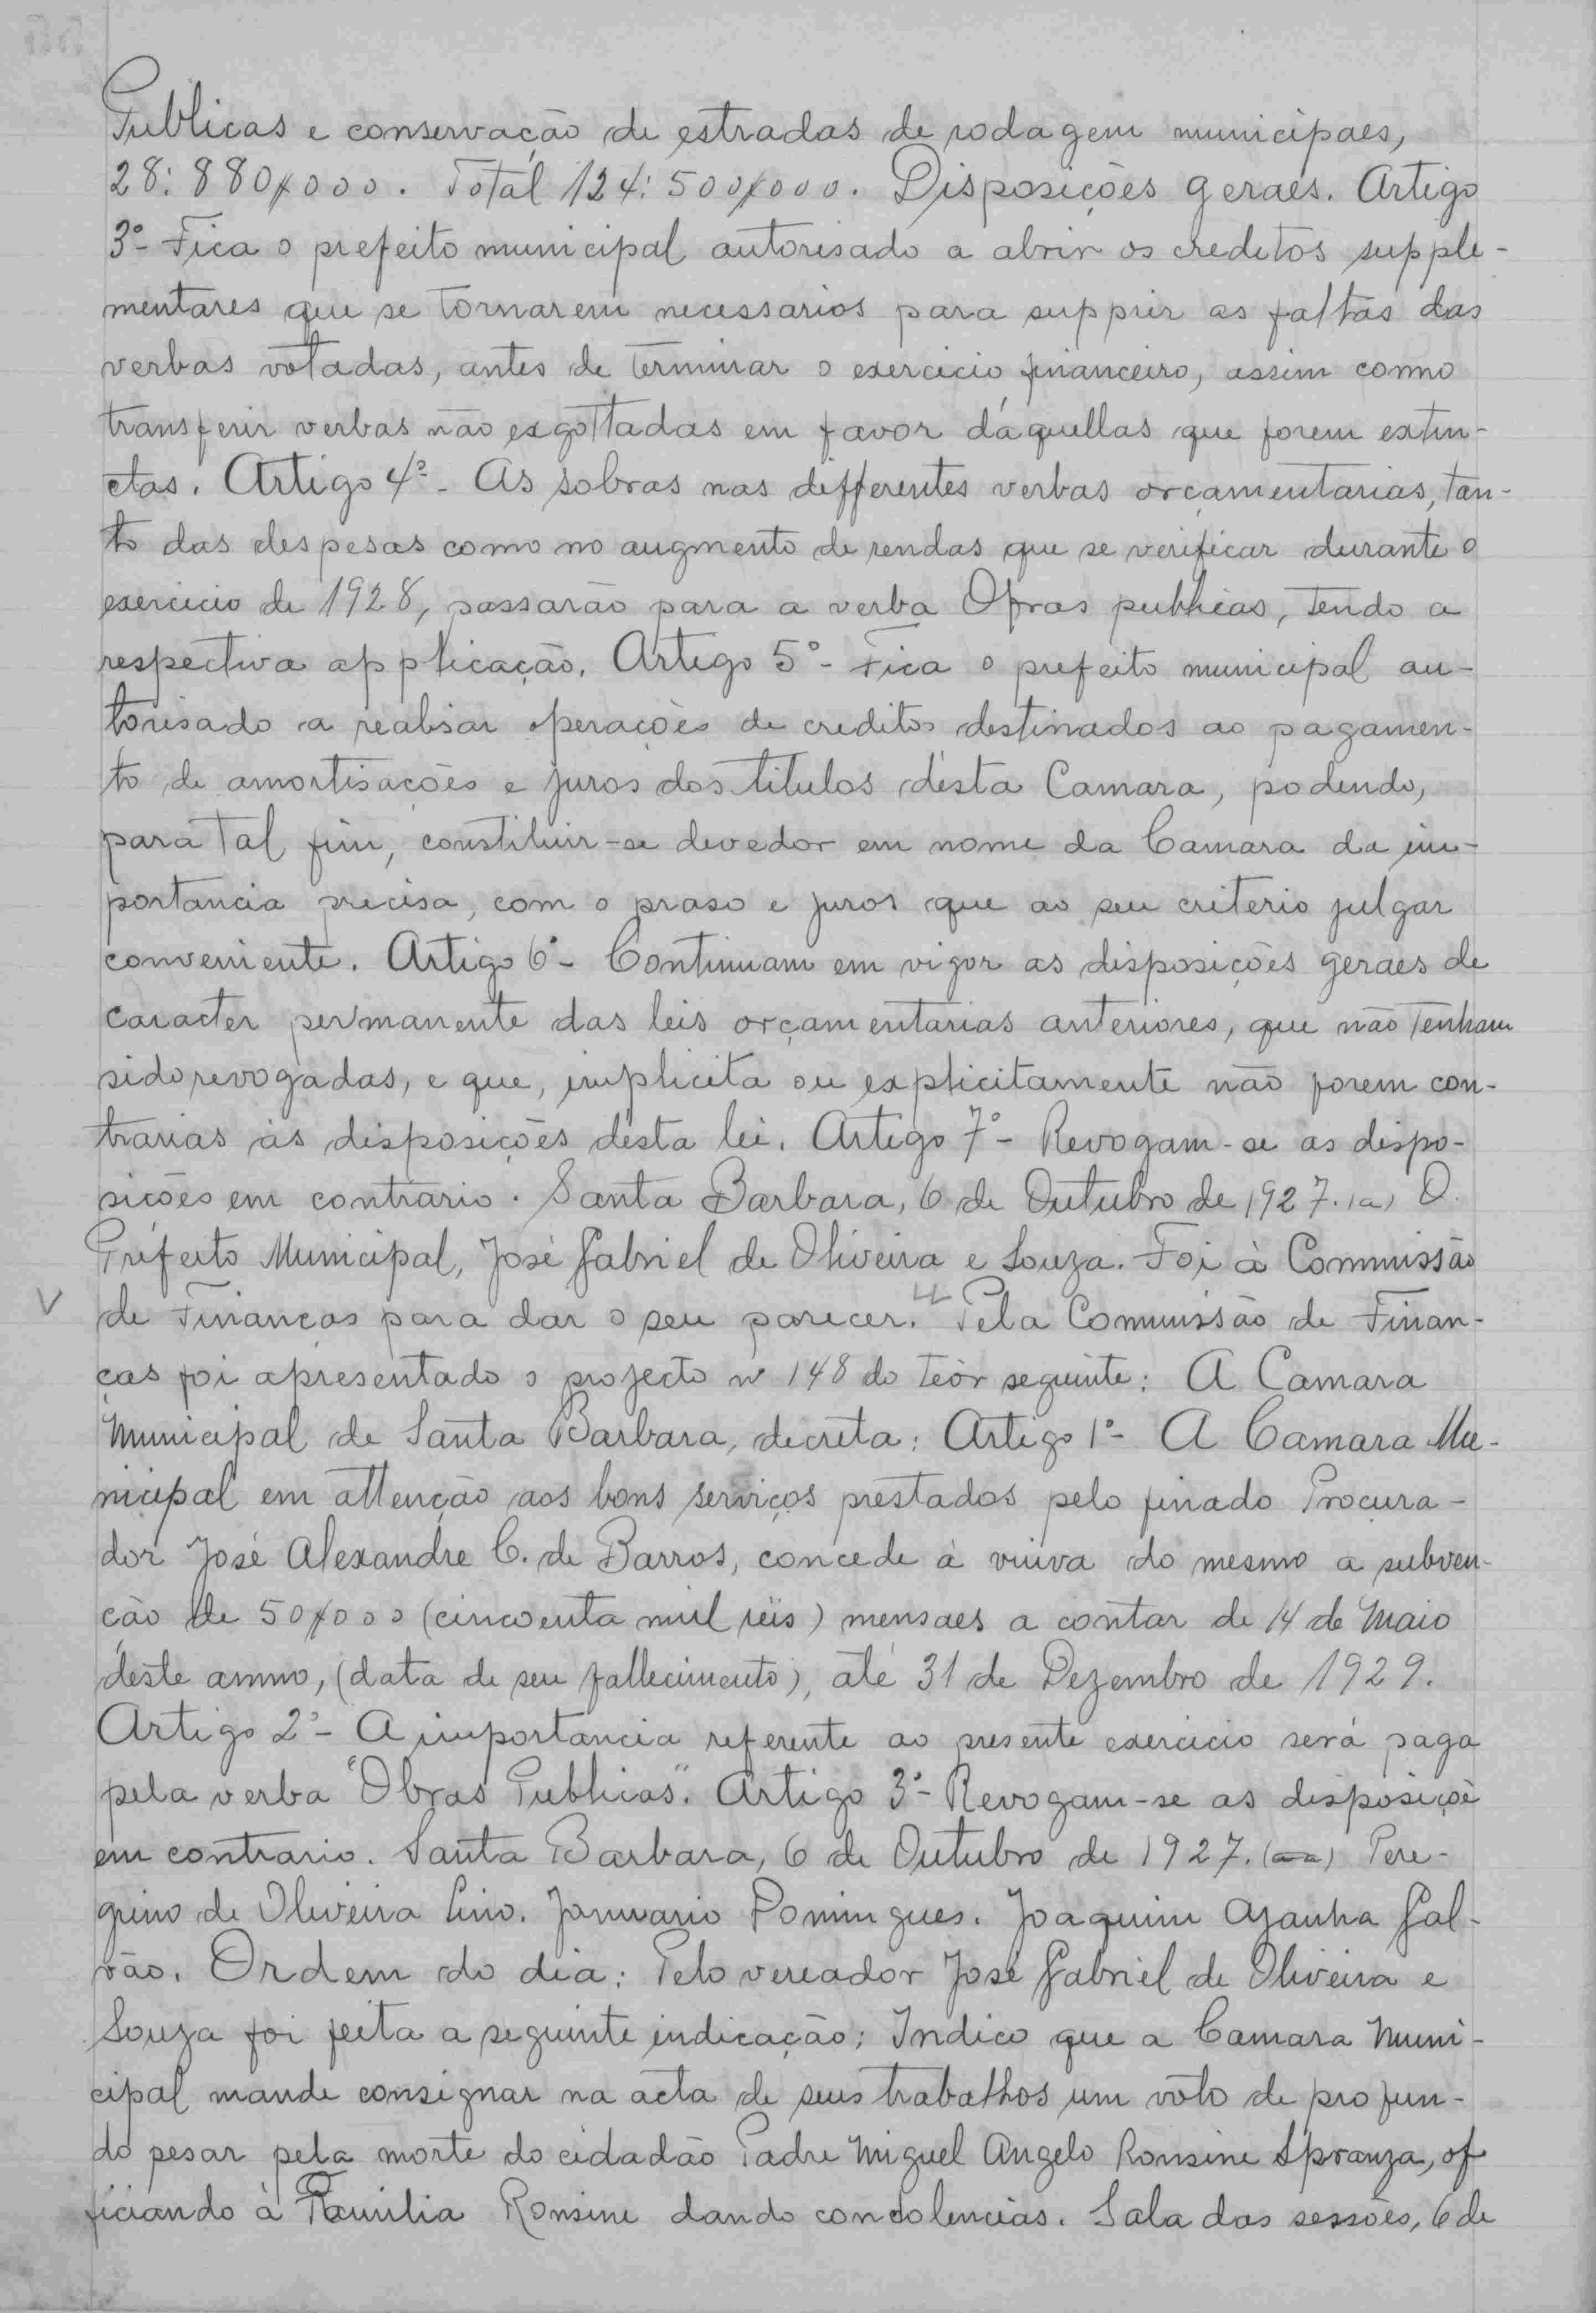 Publicas e conservação de estradas de rodagem municipaes,
28:880$000. Total 124:500$000. Disposições geraes. Artigo
3º- Fica o prefeito municipal autorisado a abrir os creditos supple-
mentares que se tornarem necessarios para supprir as faltas das
verbas votadas, antes de terminar o exercicio financeiro, assim como
transferir verbas não exgottadas em favor d'aquellas que forem extin-
ctas. Artigo 4º- As sobras nas differentes verbas orçamentarias, tan-
to das despesas como no augmento de rendas que se verificar durante o
exercicio de 1928, passarão para a verba Obras publicas, tendo a
respectiva applicação. Artigo 5º- Fica o prefeito municipal au-
torisado a realisar operações de creditos destinados ao pagamen-
to de amortisações e juros dos titulos d'esta Camara, podendo,
para tal fim, constituir-se devedor em nome da Camara da im-
portancia precisa, com o praso e juros que ao seu criterio julgar
conveniente. Artigo 6º- Continuam em vigor as disposições geraes de
caracter permanente das leis orçamentarias anteriores, que não tenham
sido revogadas, e que, implicita ou explicitamente não forem con-
trarias às disposições désta lei. Artigo 7º- Revogam-se as dispo-
sições em contrario. Santa Barbara, 6 de Outubro de 1927. (a) O.
Prefeito Municipal, José Gabriel de Oliveira e Souza. Foi à Commissão
de Finanças para dar o seu parecer. Pela Commissão de Finan-
ças foi apresentado o projecto nº 148 do teôr seguinte: A Camara
Municipal de Santa Barbara, decreta: Artigo 1º- A Camara Mu-
nicipal em attenção aos bons serviços prestados pelo finado Procura-
dor José Alexandre C. de Barros, concede à viuva do mesmo a subven-
ção de 50$000 (cincoenta mil réis) mensaes a contar de 14 de Maio
déste anno, (data de seu fallecimento), até 31 de Dezembro de 1929.
Artigo 2º- A importancia referente ao presente exercicio será paga
pela verba "Obras Publicas". Artigo 3º- Revogam-se as disposiçoẽ
em contrario. Santa Barbara, 6 de Outubro de 1927. (aa) Pere-
grino de Oliveira Lino. Januario Domingues. Joaquim Azanha Gal-
vão. Ordem do dia: Pelo vereador José Gabriel de Oliveira e
Souza foi feita a seguinte indicação: Indico que a Camara Muni-
cipal mande consignar na acta de seus trabalhos um voto de profun-
do pesar pela morte do cidadão Padre Miguel Angelo Ronsine Spranza, of
ficiando à Familia Ronsine dando condolencias. Sala das sessões, 6 de